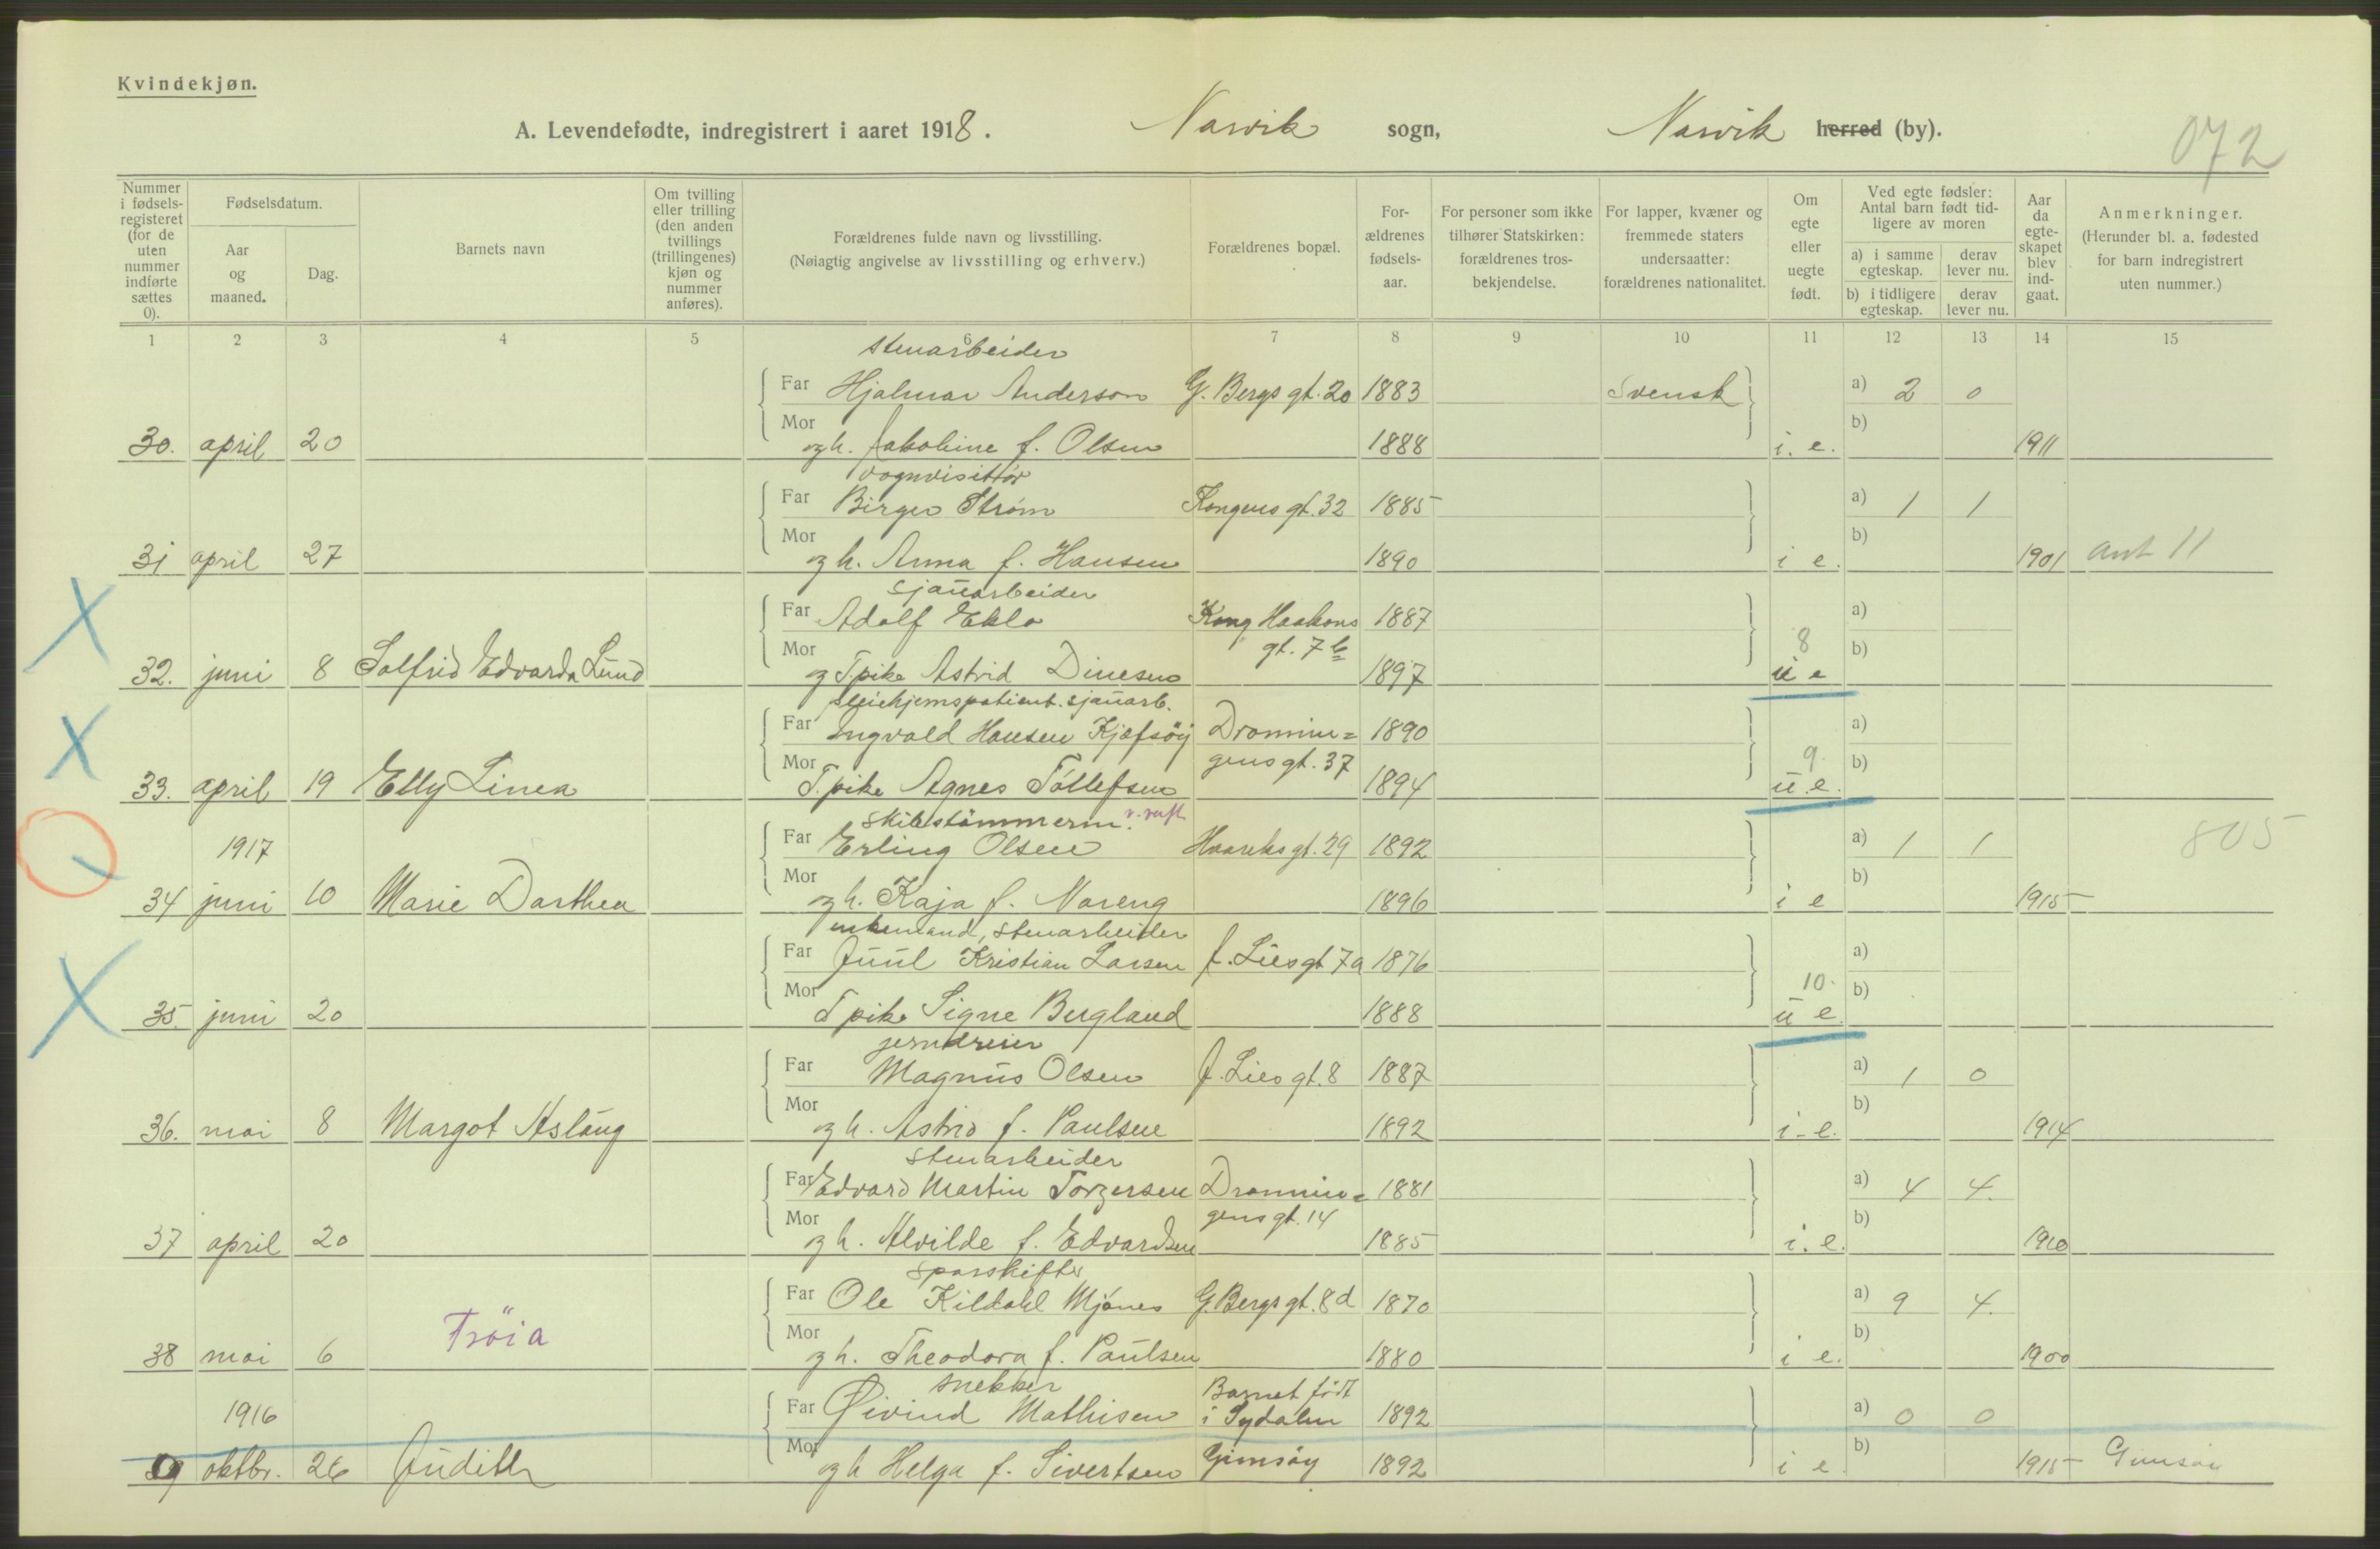 Kvindekjøn.
A. Levendefødte, indregistrert i aaret 1918. Narvik sogn, Narvik herred (by).
072
Nummer i fødselsregisteret (for de uten nummer indførte sættes 0).
Fødselsdatum.
Aar og maaned.
Dag.
Barnets navn
Om tvilling eller trilling (den anden tvillings (trillingenes) kjøn og nummer anføres).
Forældrenes fulde navn og livsstilling.
(Nøiagtig angivelse av livsstilling og erhverv.)
Forældrenes bopæl.
Forældrenes fødselsaar.
For personer som ikke tilhører Statskirken: forældrenes trosbekjendelse.
For lapper, kvæner og fremmede staters undersaatter: forældrenes nationalitet.
Om egte eller uegte født.
Ved egte fødsler: Antal barn født tidligere av moren
a) i samme egteskap.
derav lever nu.
b) i tidligere egteskap.
derav lever nu.
Aar da egteskapet blev indgaat.
Anmerkninger.
(Herunder bl. a. fødested for barn indregistrert uten nummer.)
1 2 3 4 5 6 7 8 9 10 11 12 13 14 15
stenarbeider
Far Hjalmar Anderson G. Bergs gt. 20 1883 Svensk a) 2 0
30. april 20 Mor og h. Jakobine f. Olsen 1888 i. e. b) 1911
vognvisitør
Far Birger Strøm Kongens gt. 32 1885 a) 1 1
31 april 27 Mor og h. Anna f. Hansen 1890 i e. b) 1901 ant 11
sjauarbeider
Far Adolf Eklo Kong Haakons 1887 a)
gt. 7b 8
32. juni 8 Solfrid Edvarda Lund Mor og T.pike Astrid Dinesen 1897 u e b)
pleiehjemspatient. sjauarb.
Far Ingvald Hansen Kjøfsøy Dronnin= 1890 a)
gens gt. 37 9.
33. april 19 Elly Linea Mor T.pike Agnes Tollefsen 1894 u. e. b)
skibstømmerm.
1917 Far Erling Olsen Haareks gt. 29 1892 a) 1 1 805
34 juni 10 Marie Dorthea Mor og h. Kaja f. Nareng 1896 i e b) 1915
enkemand, stenarbeider
Far Juul Kristian Larsen J. Lies gt 7a 1876 a)
10.
35. juni 20 Mor T pike Signe Bergland 1888 u e. b)
jerndreier
Far Magnus Olsen J. Lies gt. 8 1887 a) 1 0
36. mai 8 Margot Aslaug Mor og h. Astrid f. Paulsen 1892 i-e. b) 1914
stenarbeider
Far Edvard Martin Torgersen Dronnin= 1881 a) 4 4.
gens gt. 14
37 april 20 Mor og h. Alvilde f. Edvardsen 1885 i. e. b) 1910
sporskifter
Far Ole Kildahl Mjönes G. Bergs gt. 8d 1870 a) 9 4.
38 mai 6 Fröia Mor og h. Theodora f. Paulsen 1880 i e. b) 1900
snekker Barnet født
1916 Far Øivind Mathisen i Sydalen 1892 a) 0 0
oktbr. 26 Judith Mor og h Helga f. Sivertsen Gimsøy 1892 i e b) 1915 Gimsøy